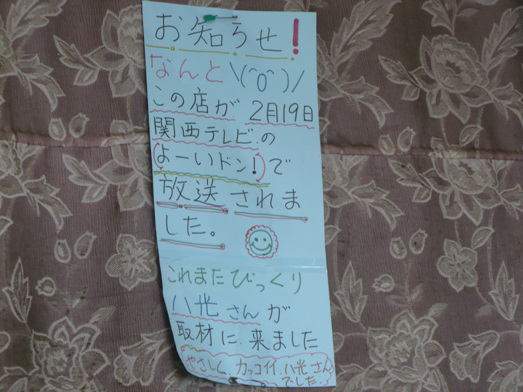 お知らせ!
なんと\(^o^)/
この店が2月19日
関西テレビの
(よーいドン!)で
放送されま
した。
これまたびっくり
八光さんが
取材に来ました
やさしく、カッコイイ、八光さん
でした。